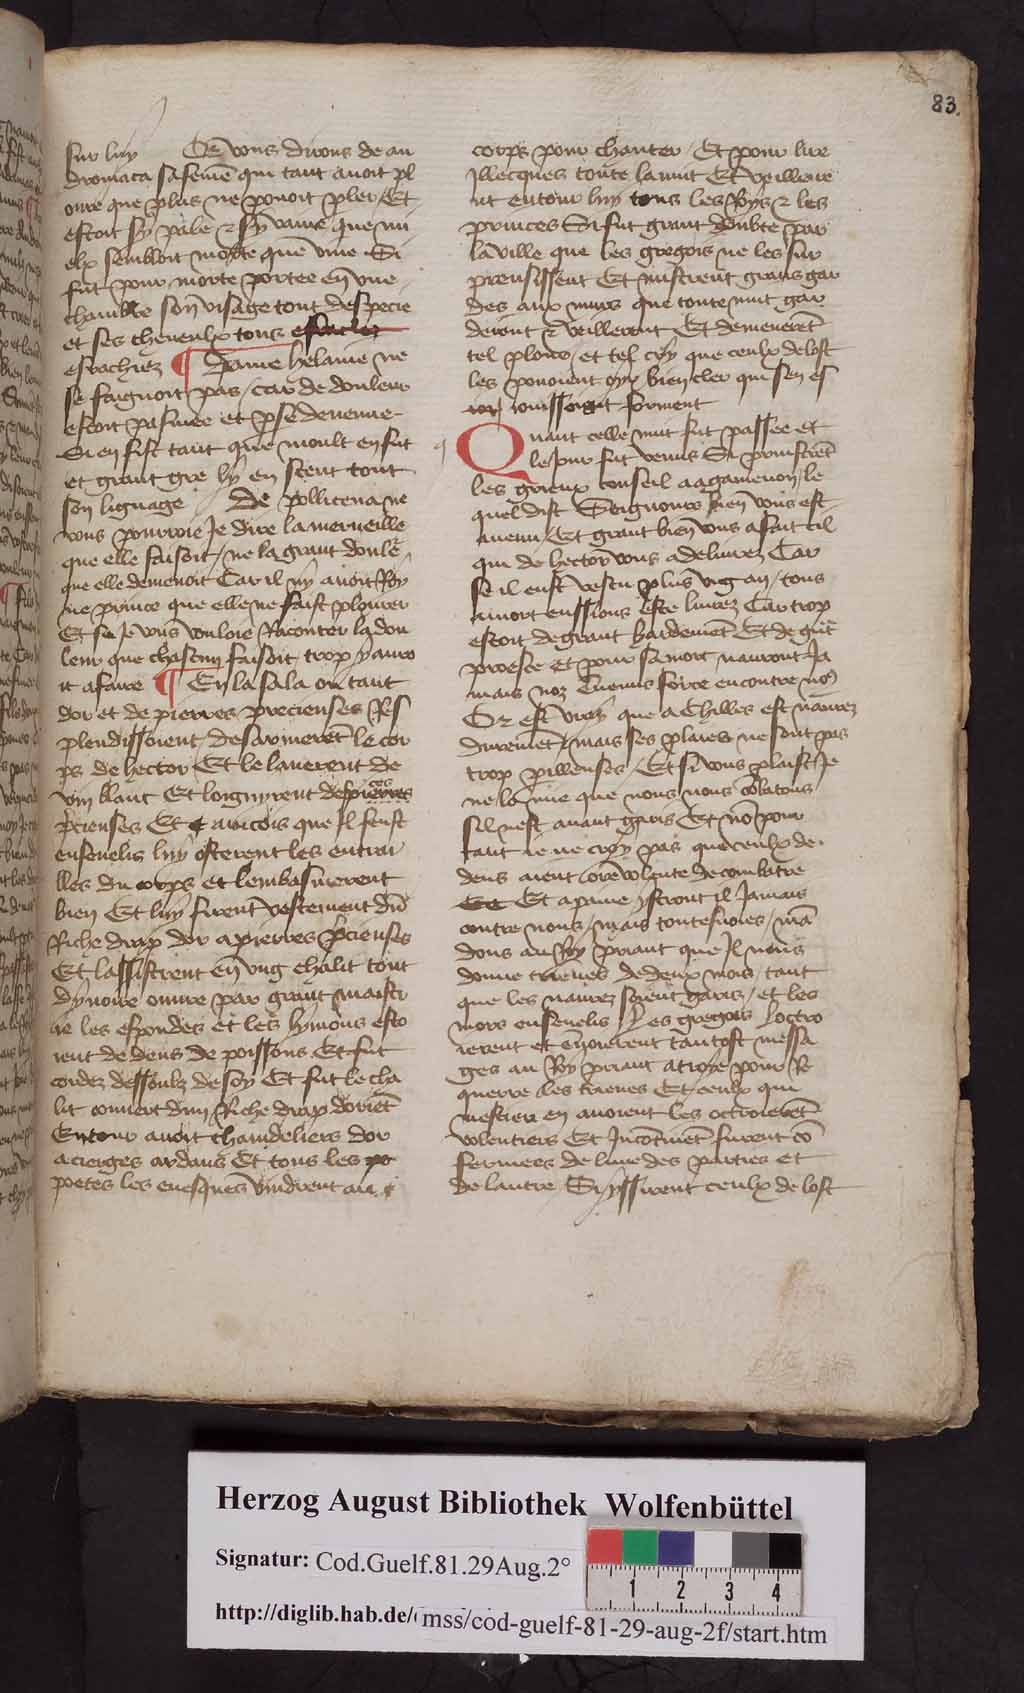 83.
sur luy Or vous dirons de an
dromaca sa feme qui tant auoit pl
oure que plus ne pouoit pler / Et
estoit sy pale & sy vaine que mi
elx sembloit morte que viue Si
fut pour morte portee en vne
chambre son visage tout despecie
et ses cheueulx tous
esrachiez ¶ Dame helaine ne
se faignoit pas / car de douleur
estoit pasmee et pse deuenue
Si en fist tant que moult en fut
et grant gre ly en sceut tout
son lignage De pollicena ne
vous pourroie Je dire la merueille
que elle faisoit / ne la grant doule
que elle demenoit Car il ny auoit Roy
ne prince que elle ne faist plourer
Et se Je vous vouloie Raconter la dou
leur que chascun faisoit trop y auro
it a faire ¶ En la sala ou tant
dor et de pierres precieuses Res
plendissoient / desarmeret le cor
ps de hector Et le lauerent de
vin blanc Et loignyrent despices
pcieuses Et aincois que Il feust
enseuelis luy osterent les entrai
lles du corps et lembasmerent
bien Et luy firent vestement du
Riche drap dor a pierres pcieuses
Et lassistrent en vng chalit tout
dyuoire ouure par grant maistr
ie les espondes et les lymons esto
ient de dens de poissons Et fut
cordez dessoulz de soy Et fut le cha
lit couuert dun Riche drap doriet
Entour auoit chandeliers dor
a cierges ardans Et tous les
poetes les euesques vindrent au
corps pour chanter / Et pour lire
Illecques toute la nuit Et veillere
nt entour luy tous les Roys & les
princes Si fut grant doubte par
la ville que les gregois ne les sur
prensissent Et mistrent grans gar
des aux murs que toute nuit gar
deront & veillerent Et demeneret
tel plour / et tel cry que ceulx de lost
les pouoient oyr bien cler qui sen es
iouissoient forment
Quant celle nuit fut passee et
le Jour fut venus Si prinstret
les grieux conseil a agamenon / le
quel dist Seigneurs bien vous est
auenu / Et grant bien vous a fait cil
qui de hector vous a deliurez Car
se il eust vescu plus vng an / tous
a mort eussions este liurez Car trop
estoit de grant hardemet Et de gnt
proesce et pour sa mort nauront Ja
mais noz ennemis force encontre nos
Or est vray que achilles est naurez
durement / mais ses plaies ne sont pas
trop perilleuses / Et si vous plaist Je
ne lo mie que nous nous cobatons
sil nest auant garis Et no pour
tant ie ne croy pas que ceulx de
dens aient ore volente de combatre
Et a paine ystront il Jamais
contre nous / mais toutesuoies / ma
dons au Roy priant que Il nous
donne trieues de deux mois / tant
que les naurez soient garis / et les
mors enseuelis Les gregois loctro
ierent et enuoierent tantost messa
ges au Roy priant a troye pour Re
querre les trieues Et ceulx qui
mestier en auoient les octroieret
volentiers Et Incotinet furent co
fermees de lune des parties et
de lautre Si yssirent ceulx de lost
Herzog August Bibliothek Wolfenbüttel
Signatur: Cod.Guelf.81.29Aug.2°
http://diglib.hab.de/mss/cod-guelf-81-29-aug-2f/start.htm
1 2 3 4